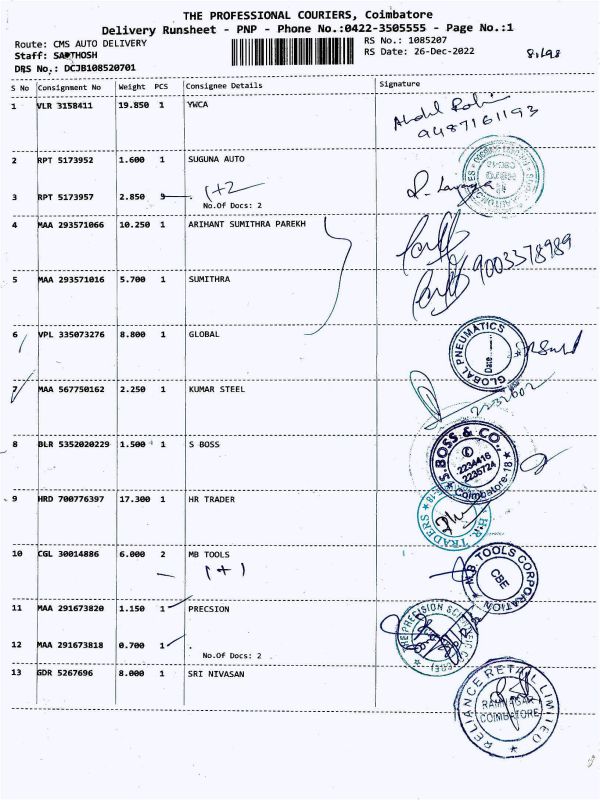 THE PROFESSIONAL COURIERS, Coimbatore
Delivery Runsheet - PNP - Phone No.:0422-3505555 - Page No.:1
Route: CMS AUTO DELIVERY
RS No.: 1085207
Staff: SANTHOSH
RS Date: 26-Dec-2022
DRS No.: DCJB108520701
S No Consignment No Weight PCS Consignee Details Signature
1 VLR 3158411 19.850 1 YWCA
9487161193
2 RPT 5173952 1.600 1 SUGUNA AUTO
1+2
3 RPT 5173957 2.850 3
No.Of Docs: 2
4 MAA 293571066 10.250 1 ARIHANT SUMITHRA PAREKH
9003378989
5 MAA 293571016 5.700 1 SUMITHRA
6 VPL 335073276 8.800 1 GLOBAL
GLOBAL PNEUMATICS
Date
7 MAA 567750162 2.250 1 KUMAR STEEL
2232602
8 BLR 5352020229 1.500 1 S BOSS
S.BOSS & CO.,
2234416
2235724
Coimbatore-18
9 HRD 700776397 17.300 1 HR TRADER
H.R. TRADERS
10 CGL 30014886 6.000 2 MB TOOLS
1+1
M.B. TOOLS CORPORATION
CBE
11 MAA 291673820 1.150 1 PRECSION
THE PRECISION SCIENTIFIC
12 MAA 291673818 0.700 1 .
No.Of Docs: 2
13 GDR 5267696 8.000 1 SRI NIVASAN
RELIANCE RETAIL LIMITED
RAMNAGAR
COIMBATORE